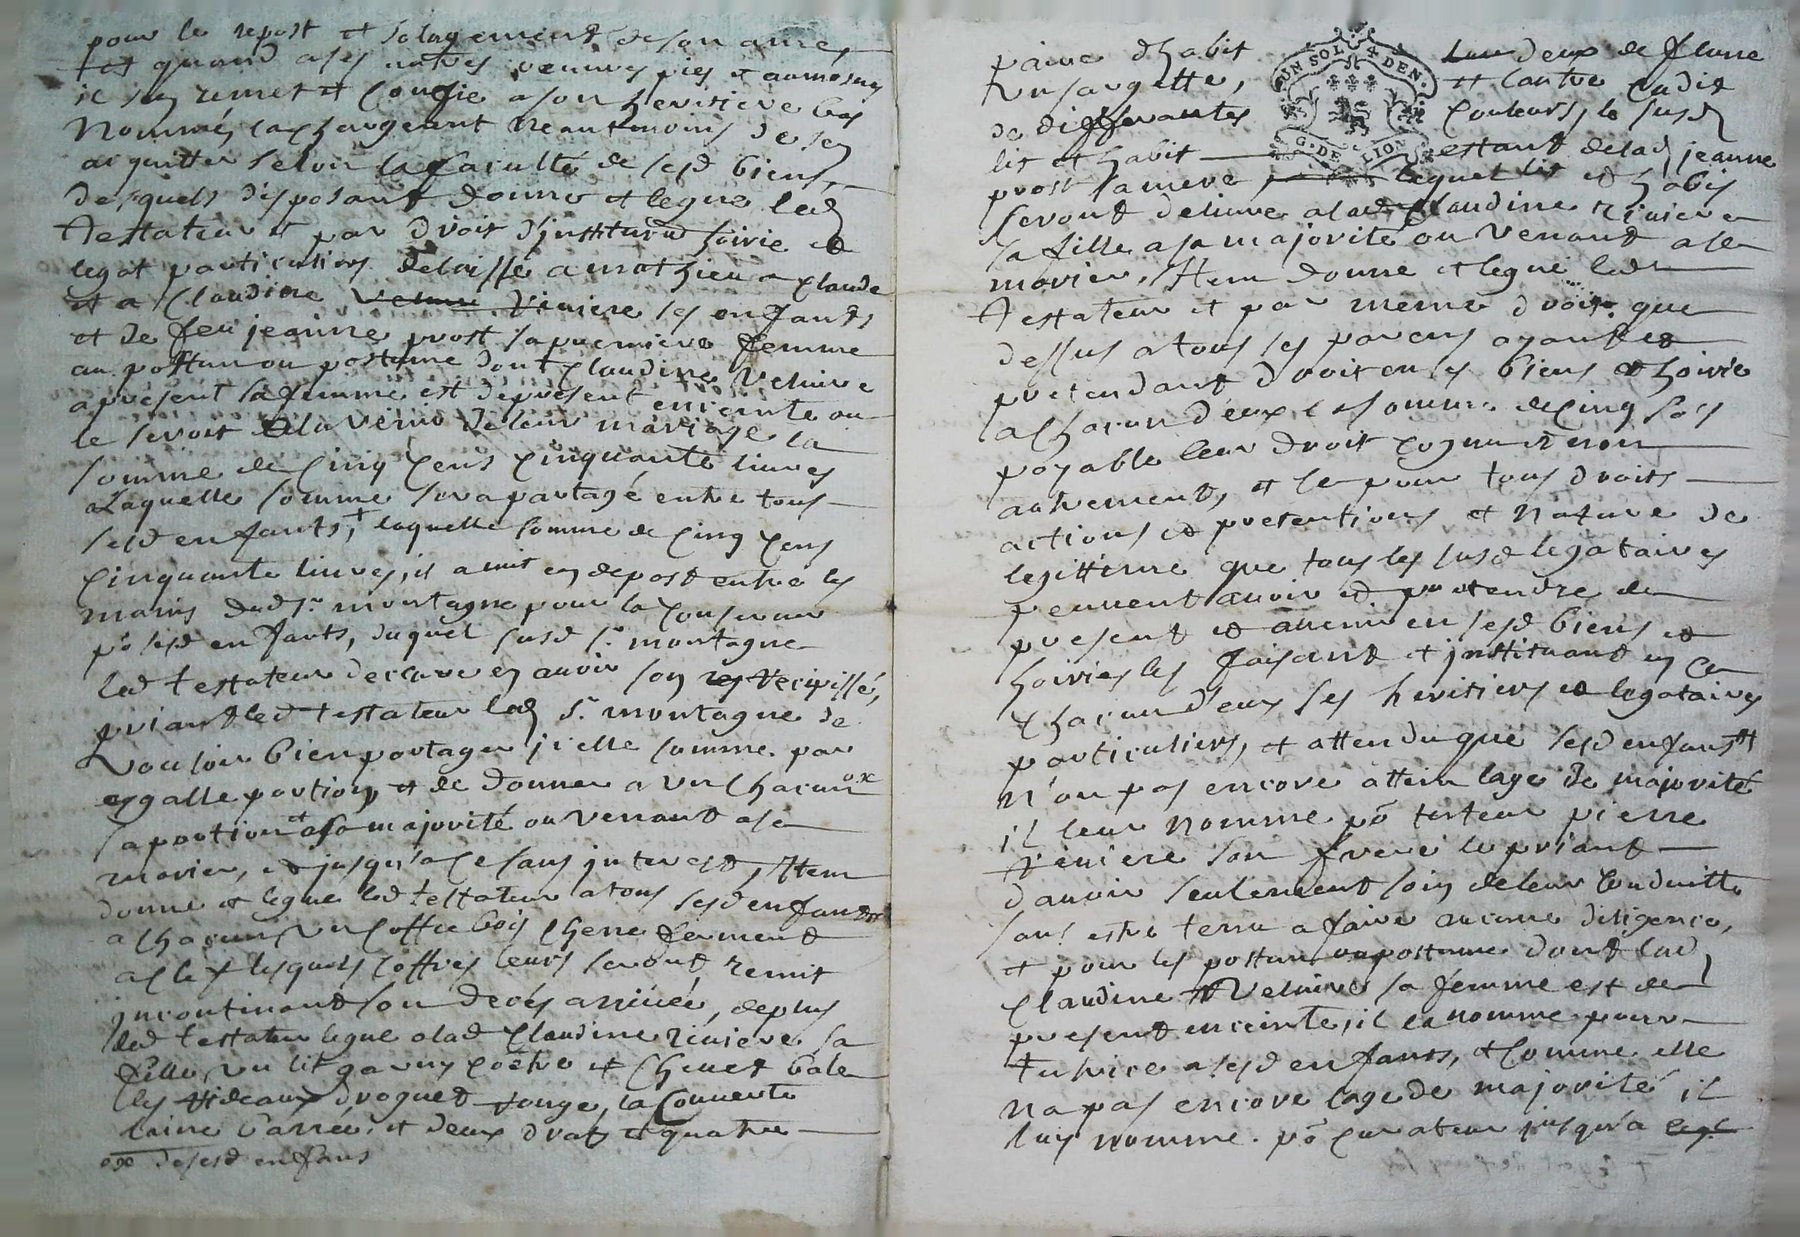 pour le repost et solagement de son ame,
et quand a ses autres œuvres pies et aumosnes
il s'en remet et confie a son heritiere bas
nommée, la chargeant neantmoins de s'en
acquitter selon la faculté de sesd biens,
desquels disposant donne et legue led
testateur et par droit d'institu͠on hoirie et
legat particuliers delaisse a mathieu a claude
et a Claudine riviere ses enfants
et de feu jeanne prost sa premiere femme
au posthun ou postume dont claudine Veluire
a present sa femme est de present enceinte ou
le seroit de leur mariage la
somme de Cinq Cens Cinquante livres
Laquelle somme sera partagé entre tous
sesd enfants, + laquelle somme de Cinq Cens
Cinquante livres, il a mit en depost entre les
mains dud sr. montagne pour la conserver
po͠ sesd enfants, duquel susd sr. montagne
led testateur declare en avoir son recipissé,
priant led testateur led sr. montagne de
vouloir bien partager jcelle somme par
egalle portion, et de donner a un Chacun ox
sa portion a sa majorité ou venant a se
marier, et jusqu'a ce sans interest, Item
donne et legue led testateur a tous sesd enfants
a chacun un coffre bois chene fermant
a clef lesquels coffres leurs seront remit
incontinant son decés arrivée, de plus
led testateur legue a lad Claudine riviere sa
fille, un lit garny coëtre et Chevet bale
les rideaux droguet rouge, la Couverte
laine barrée, et deux draps et quatre
ox de sesd enfans
paire d'habit
un sargette,
de differantes
lit et habit
UN SOL 4 DEN.
G. DE LION
L'un deux de fleure
et l'autre cadis
Couleurs, le susd
estant de lad jeanne
prost sa mere, lequel lit et habis
seront delivre a lad Claudine riviere
sa fille a sa majorité ou venant a se
marier, Item donne et legue led
testateur et par meme droit que
dessus a tous ses parens ayant et
pretendant droit en ses biens et hoirie
a chacun d'eux la somme de Cinq sols
payable leur droit cognu et non
autrement, et ce pour tous droits
actions et pretentions et nature de
legittime que tous les susd legataires
peuvent avoir et pretendre de
present et avenir en sesd biens et
hoiries les faisant et jnstituant en ce
chacun d'eux ses heritiers et legataires
particuliers, et attendu que sesd enfans
n'on pas encore atteint lage de majorité
il leur nomme po͠ tuteur pierre
riviere son frere le priant
d'avoir seulement soin de leur Conduitte
sans estre tenu a faire aucune diligence,
et pour les posthun postume dont lad
Claudine Veluire sa femme est de
present enceinte, il la nomme pour
tutrice a sesd enfants, et Comme elle
na pas encore lage de majorité il
luy nomme po͠ curateur jusqu'a